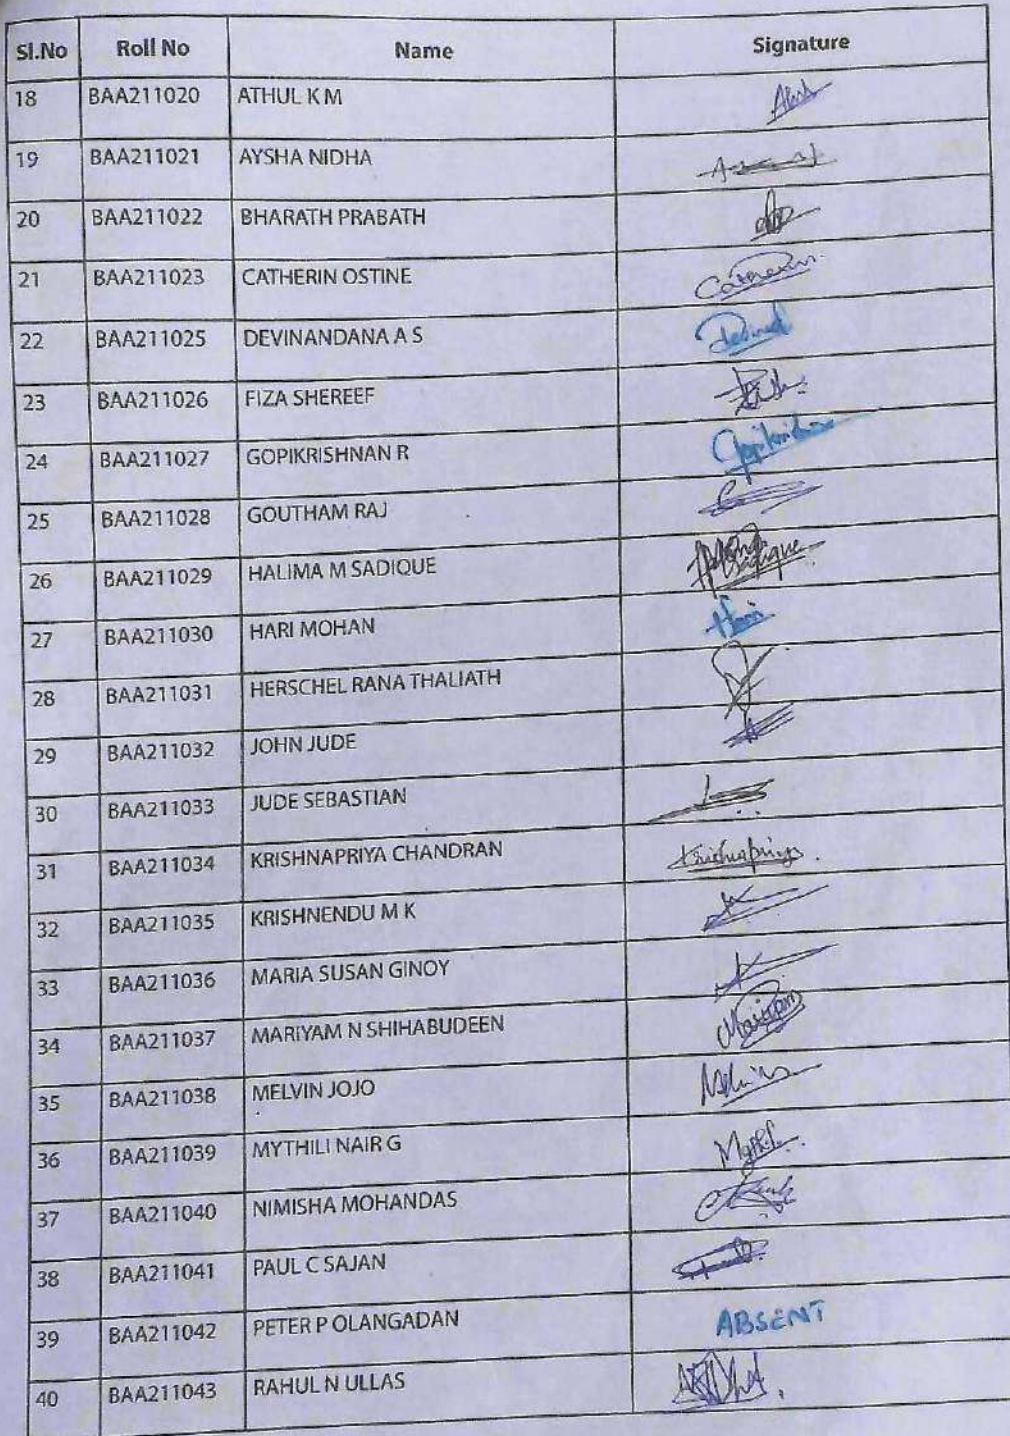 Sl.No Roll No Name Signature
18 BAA211020 ATHUL K M
19 BAA211021 AYSHA NIDHA
20 BAA211022 BHARATH PRABATH
21 BAA211023 CATHERIN OSTINE Catherin
22 BAA211025 DEVINANDANA A S
23 BAA211026 FIZA SHEREEF
24 BAA211027 GOPIKRISHNAN R Gopikrishnan
25 BAA211028 GOUTHAM RAJ
26 BAA211029 HALIMA M SADIQUE
27 BAA211030 HARI MOHAN Hari
28 BAA211031 HERSCHEL RANA THALIATH
29 BAA211032 JOHN JUDE
30 BAA211033 JUDE SEBASTIAN
31 BAA211034 KRISHNAPRIYA CHANDRAN Krishnapriya
32 BAA211035 KRISHNENDU M K
33 BAA211036 MARIA SUSAN GINOY
34 BAA211037 MARIYAM N SHIHABUDEEN Mariyam
35 BAA211038 MELVIN JOJO Melvin
36 BAA211039 MYTHILI NAIR G
37 BAA211040 NIMISHA MOHANDAS
38 BAA211041 PAUL C SAJAN
39 BAA211042 PETER P OLANGADAN ABSENT
40 BAA211043 RAHUL N ULLAS